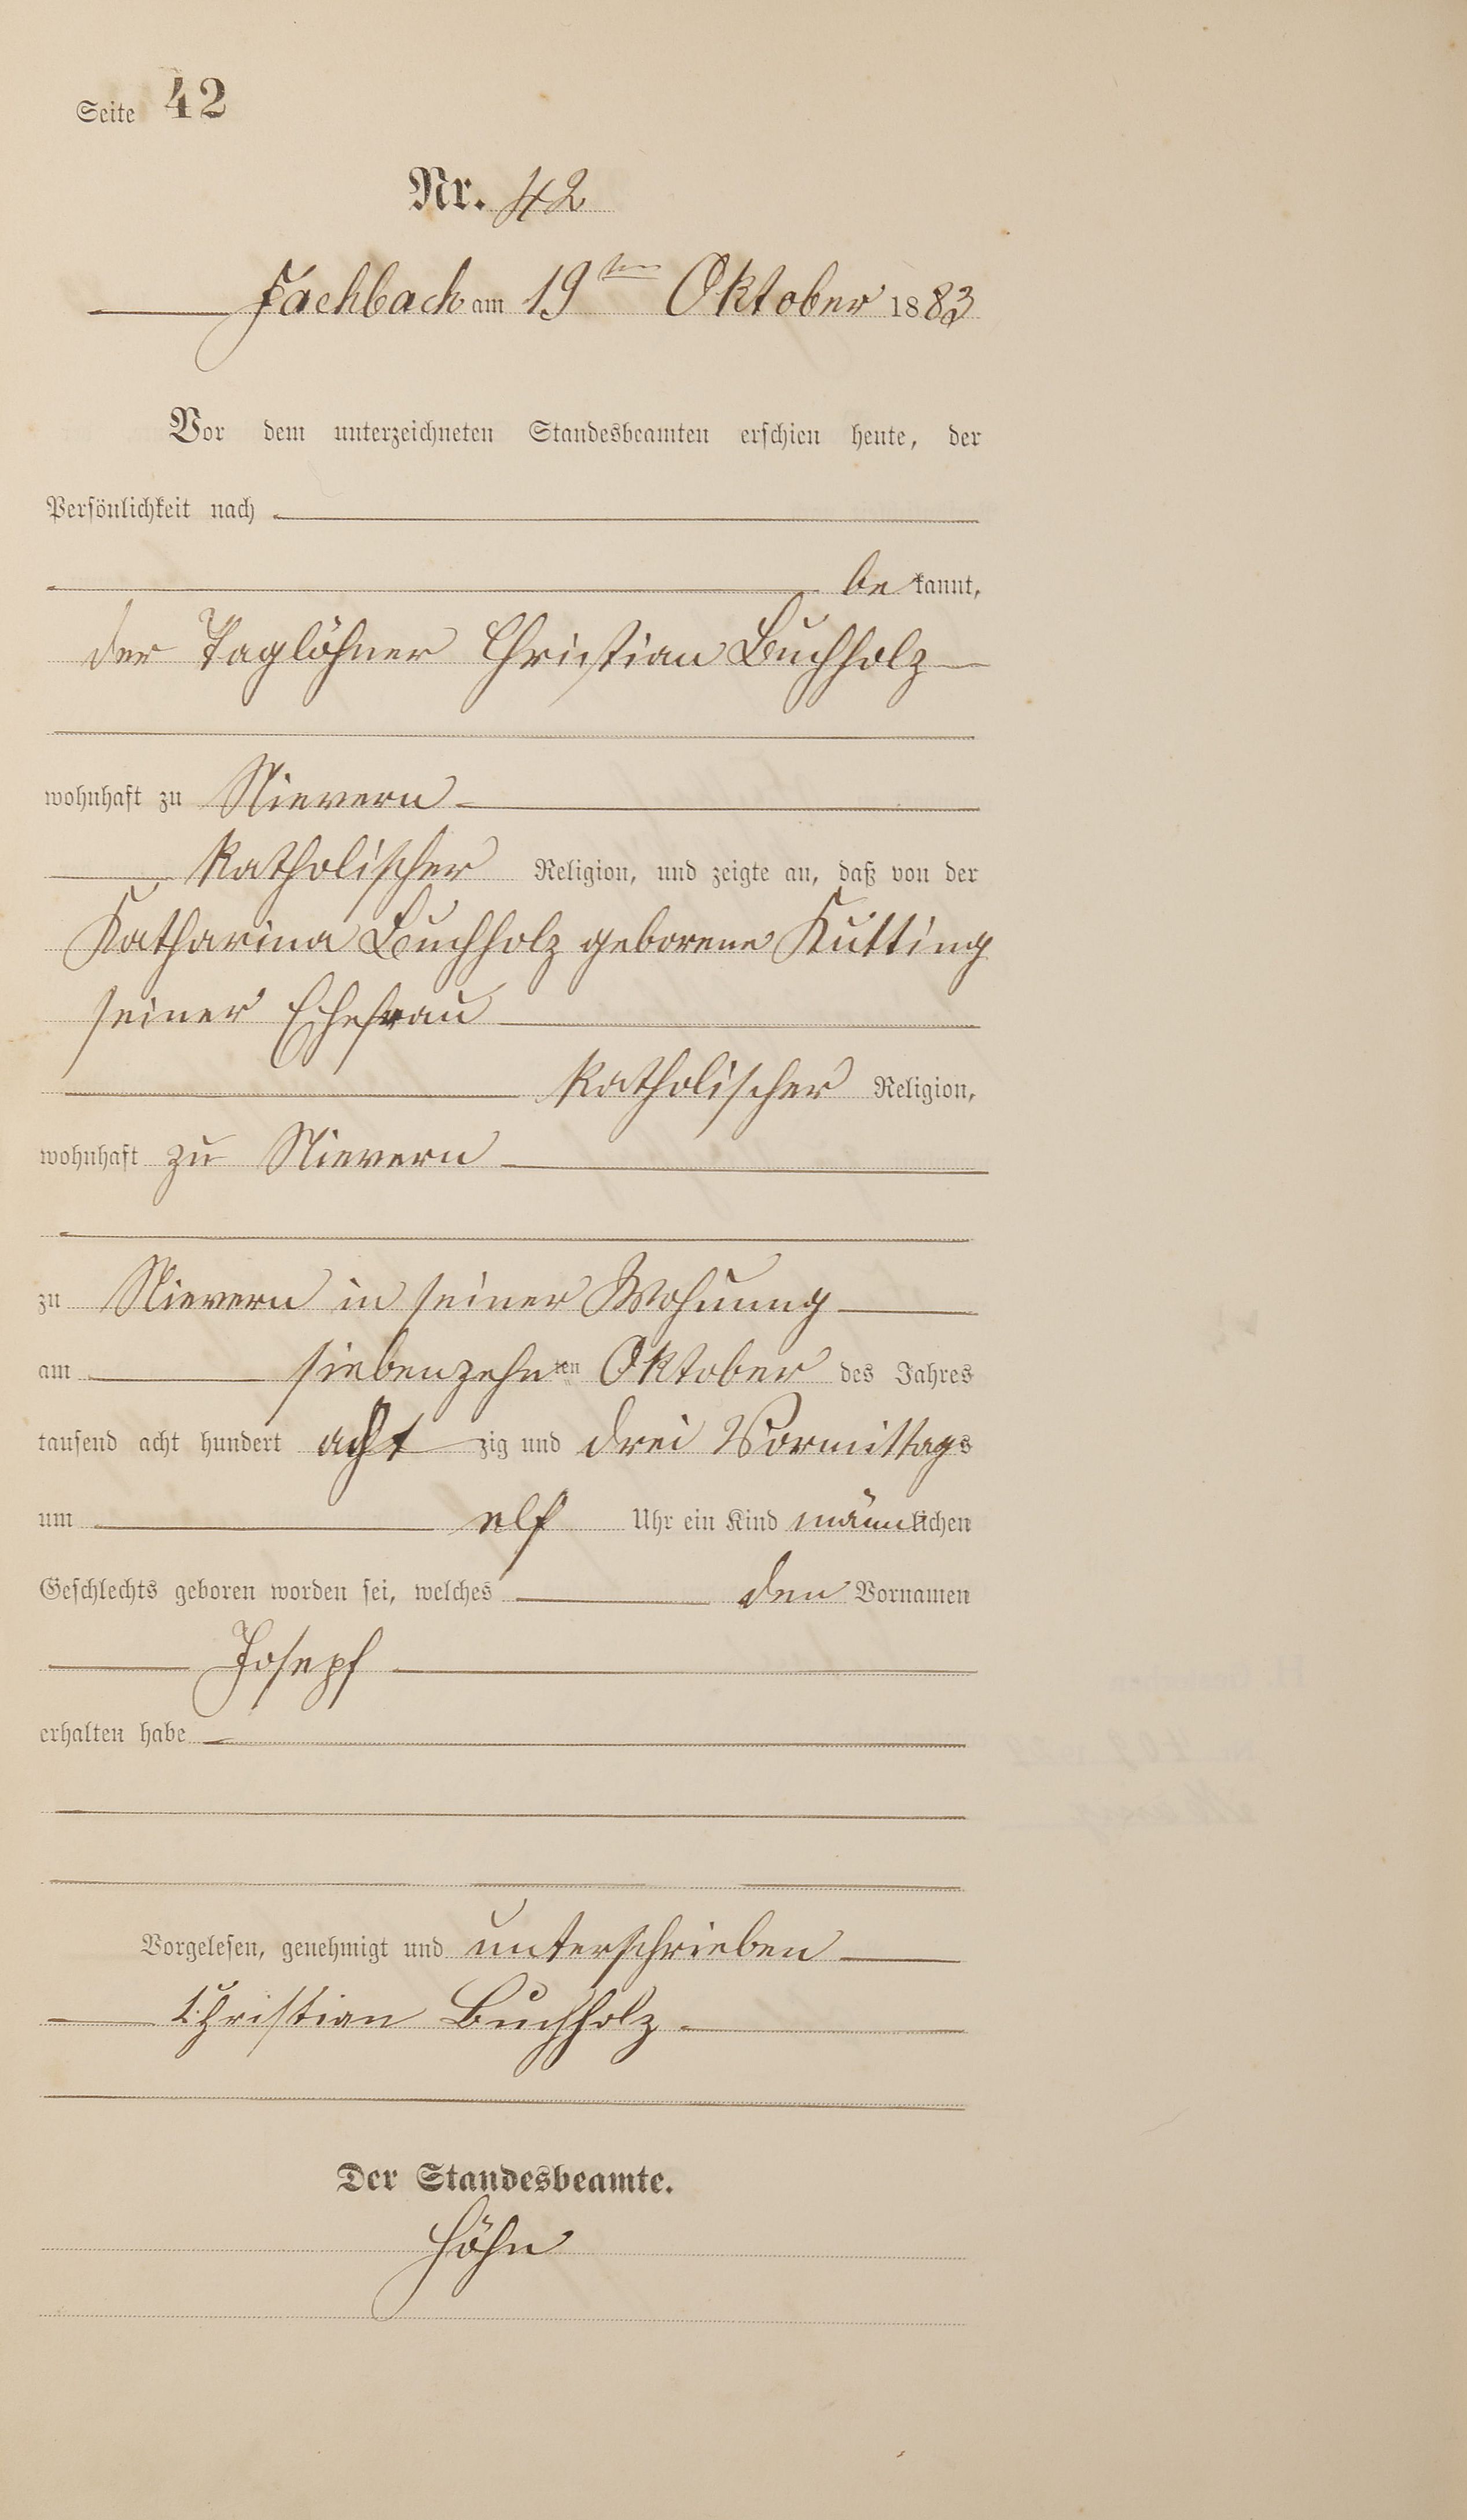 Seite 42
Nr. 42
Fachbach am 19ten Oktober 1883
Vor dem unterzeichneten Standesbeamten erschien heute, der
Persönlichkeit nach
be kannt,
der Taglöhner Christian Buchholz
wohnhaft zu Nievern
katholischer Religion, und zeigte an, daß von der
Katharina Buchholz geborene Kutting
seiner Ehefrau
katholischer Religion,
wohnhaft zu Nievern
zu Nievern in seiner Wohnung
am siebenzehnten Oktober des Jahres
tausend acht hundert acht zig und drei Vormittags
um elf Uhr ein Kind männlichen
Geschlechts geboren worden sei, welches den Vornamen
Josepf
erhalten habe
Vorgelesen, genehmigt und unterschrieben
Christian Buchholz
Der Standesbeamte.
Höhn